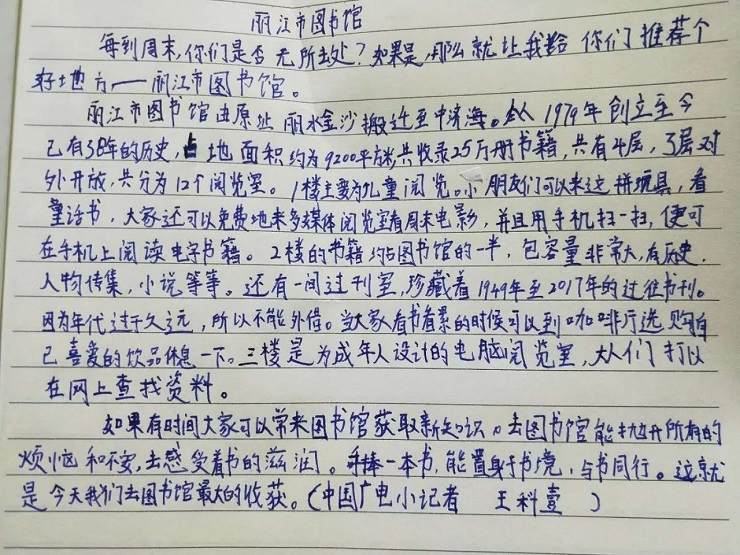 丽江市图书馆
每到周末,你们是否无所去处?如果是,那么就让我给你们推荐个
好地方——丽江市图书馆。
丽江市图书馆由原址丽水金沙搬迁至中济海。从1979年创立至今
已有38年的历史,占地面积约为9200平方米,共收录25万册书籍,共有4层,3层对
外开放,共分为12个阅览室。1楼主要为儿童阅览。小朋友们可以来这拼玩具,看
童话书,大家还可以免费地来多媒体阅览室看周末电影,并且用手机扫一扫,便可
在手机上阅读电字书籍。2楼的书籍约占图书馆的一半,包容量非常大,有历史,
人物传集,小说等等。还有一间过刊室,珍藏着1949年至2017年的过往书刊。
因为年代过于久远,所以不能外借。当大家看书看累的时候可以到咖啡厅选购自
己喜爱的饮品休息一下。三楼是为成年人设计的电脑阅览室,大人们可以
在网上查找资料。
如果有时间大家可以常来图书馆获取新知识。去图书馆能抛开所有的
烦恼和不安,去感受着书的滋润。手捧一本书,能置身于书境,与书同行。这就
是今天我们去图书馆最大的收获。(中国广电小记者 王科壹)